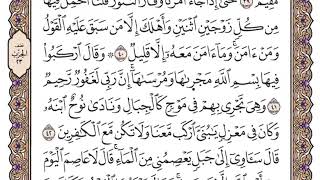 مُّقِيمٌ ٣٩ حَتَّىٰٓ إِذَا جَآءَ أَمْرُنَا وَفَارَ ٱلتَّنُّورُ قُلْنَا ٱحْمِلْ فِيهَا
مِن كُلٍّ زَوْجَيْنِ ٱثْنَيْنِ وَأَهْلَكَ إِلَّا مَن سَبَقَ عَلَيْهِ ٱلْقَوْلُ
وَمَنْ ءَامَنَ وَمَآ ءَامَنَ مَعَهُۥٓ إِلَّا قَلِيلٌ ٤٠ وَقَالَ ٱرْكَبُوا۟
فِيهَا بِسْمِ ٱللَّهِ مَجْر۪ىٰهَا وَمُرْسَىٰهَآ إِنَّ رَبِّى لَغَفُورٌ رَّحِيمٌ
٤١ وَهِىَ تَجْرِى بِهِمْ فِى مَوْجٍ كَٱلْجِبَالِ وَنَادَىٰ نُوحٌ ٱبْنَهُۥ
وَكَانَ فِى مَعْزِلٍ يَـٰبُنَىَّ ٱرْكَب مَّعَنَا وَلَا تَكُن مَّعَ ٱلْكَـٰفِرِينَ ٤٢
قَالَ سَـَٔاوِىٓ إِلَىٰ جَبَلٍ يَعْصِمُنِى مِنَ ٱلْمَآءِ قَالَ لَا عَاصِمَ ٱلْيَوْمَ